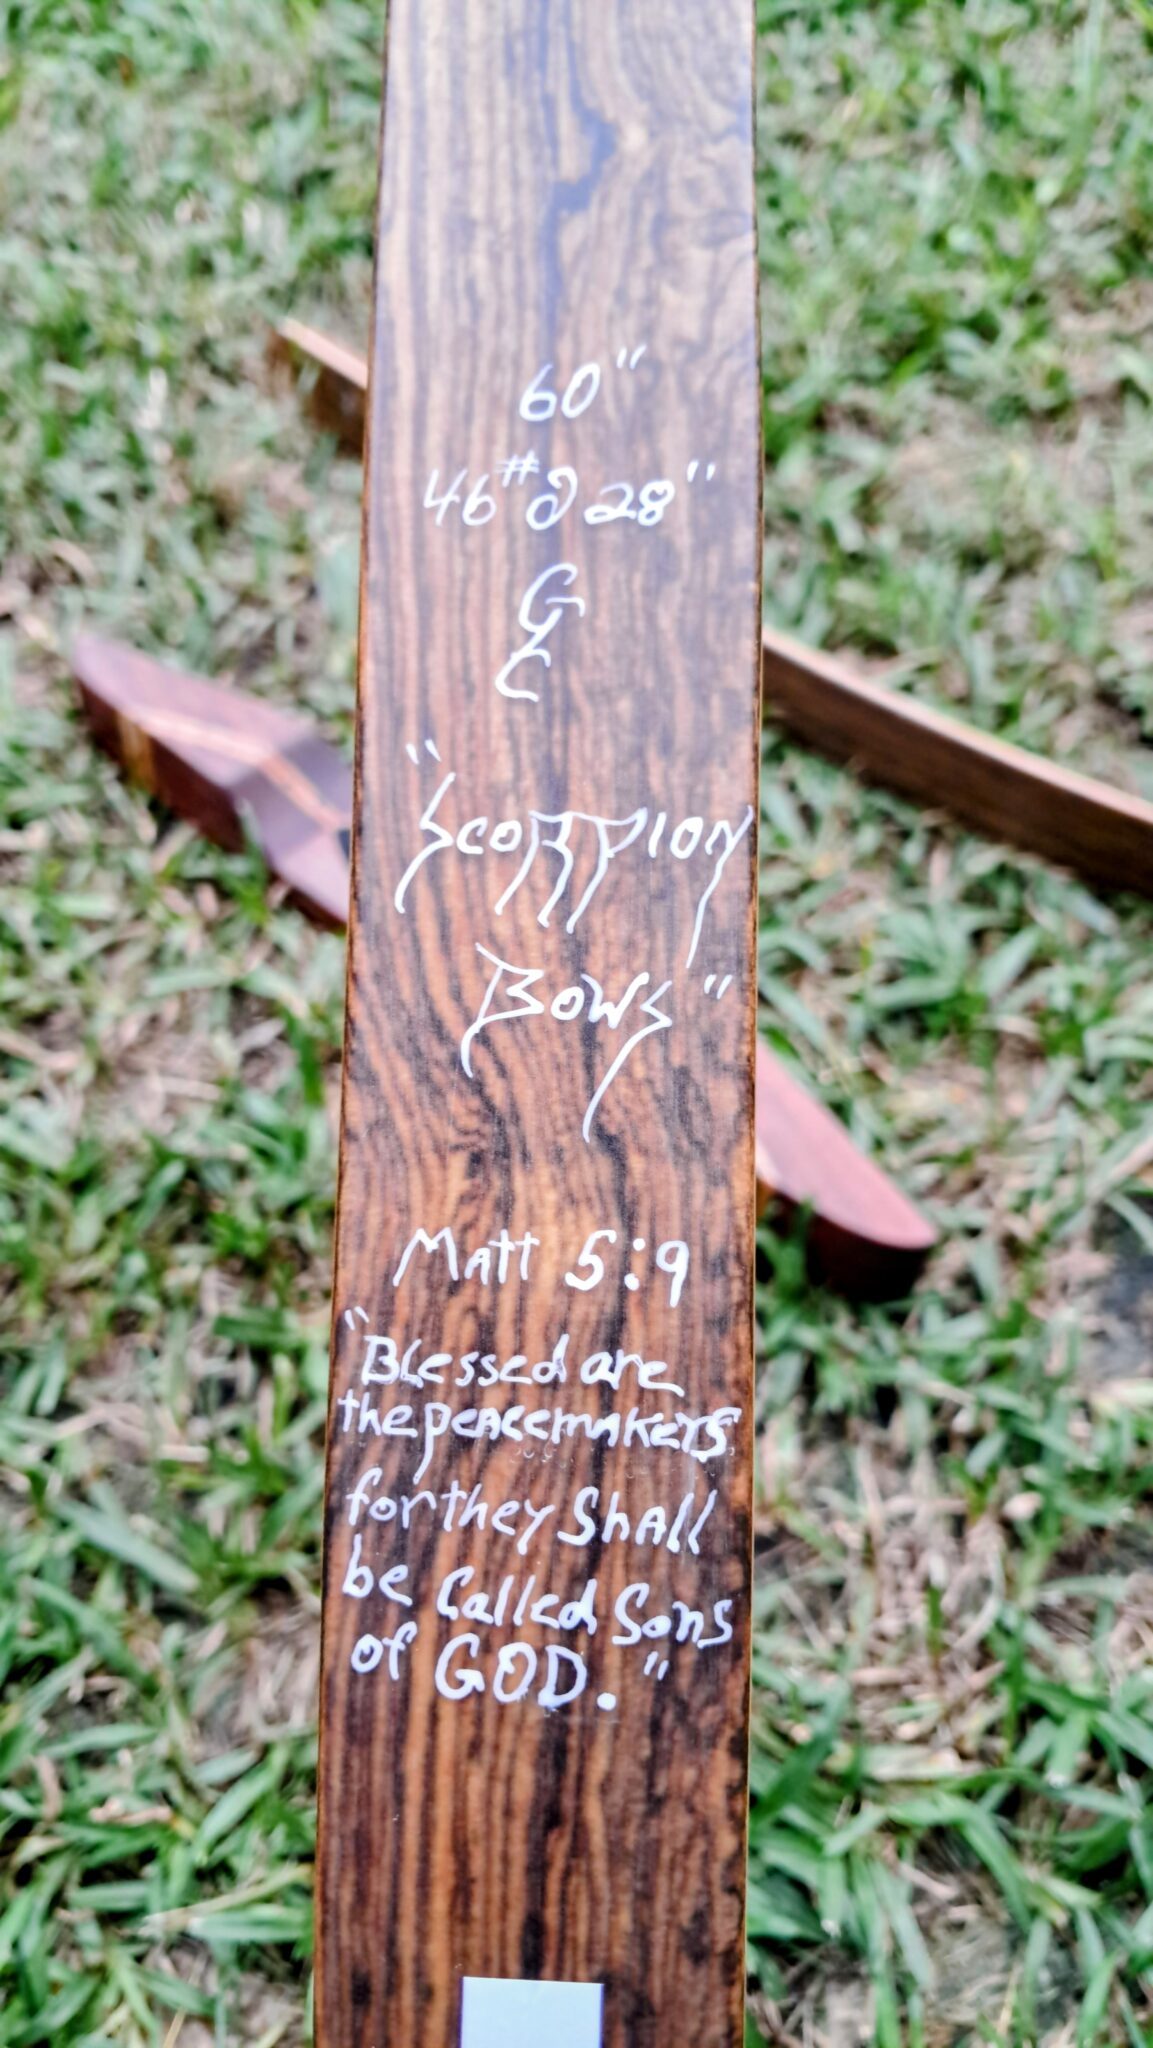 60"
46#@28"
G
C
"Scorpion
Bows"
Matt 5:9
"Blessed are
the peacemakers
for they Shall
be Called Sons
of GOD."